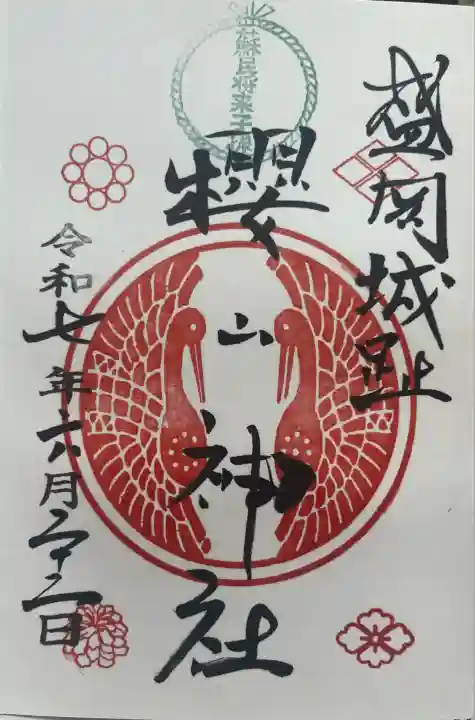 盛岡城趾
櫻山神社
令和七年六月二十二日
蘇民将来子孫